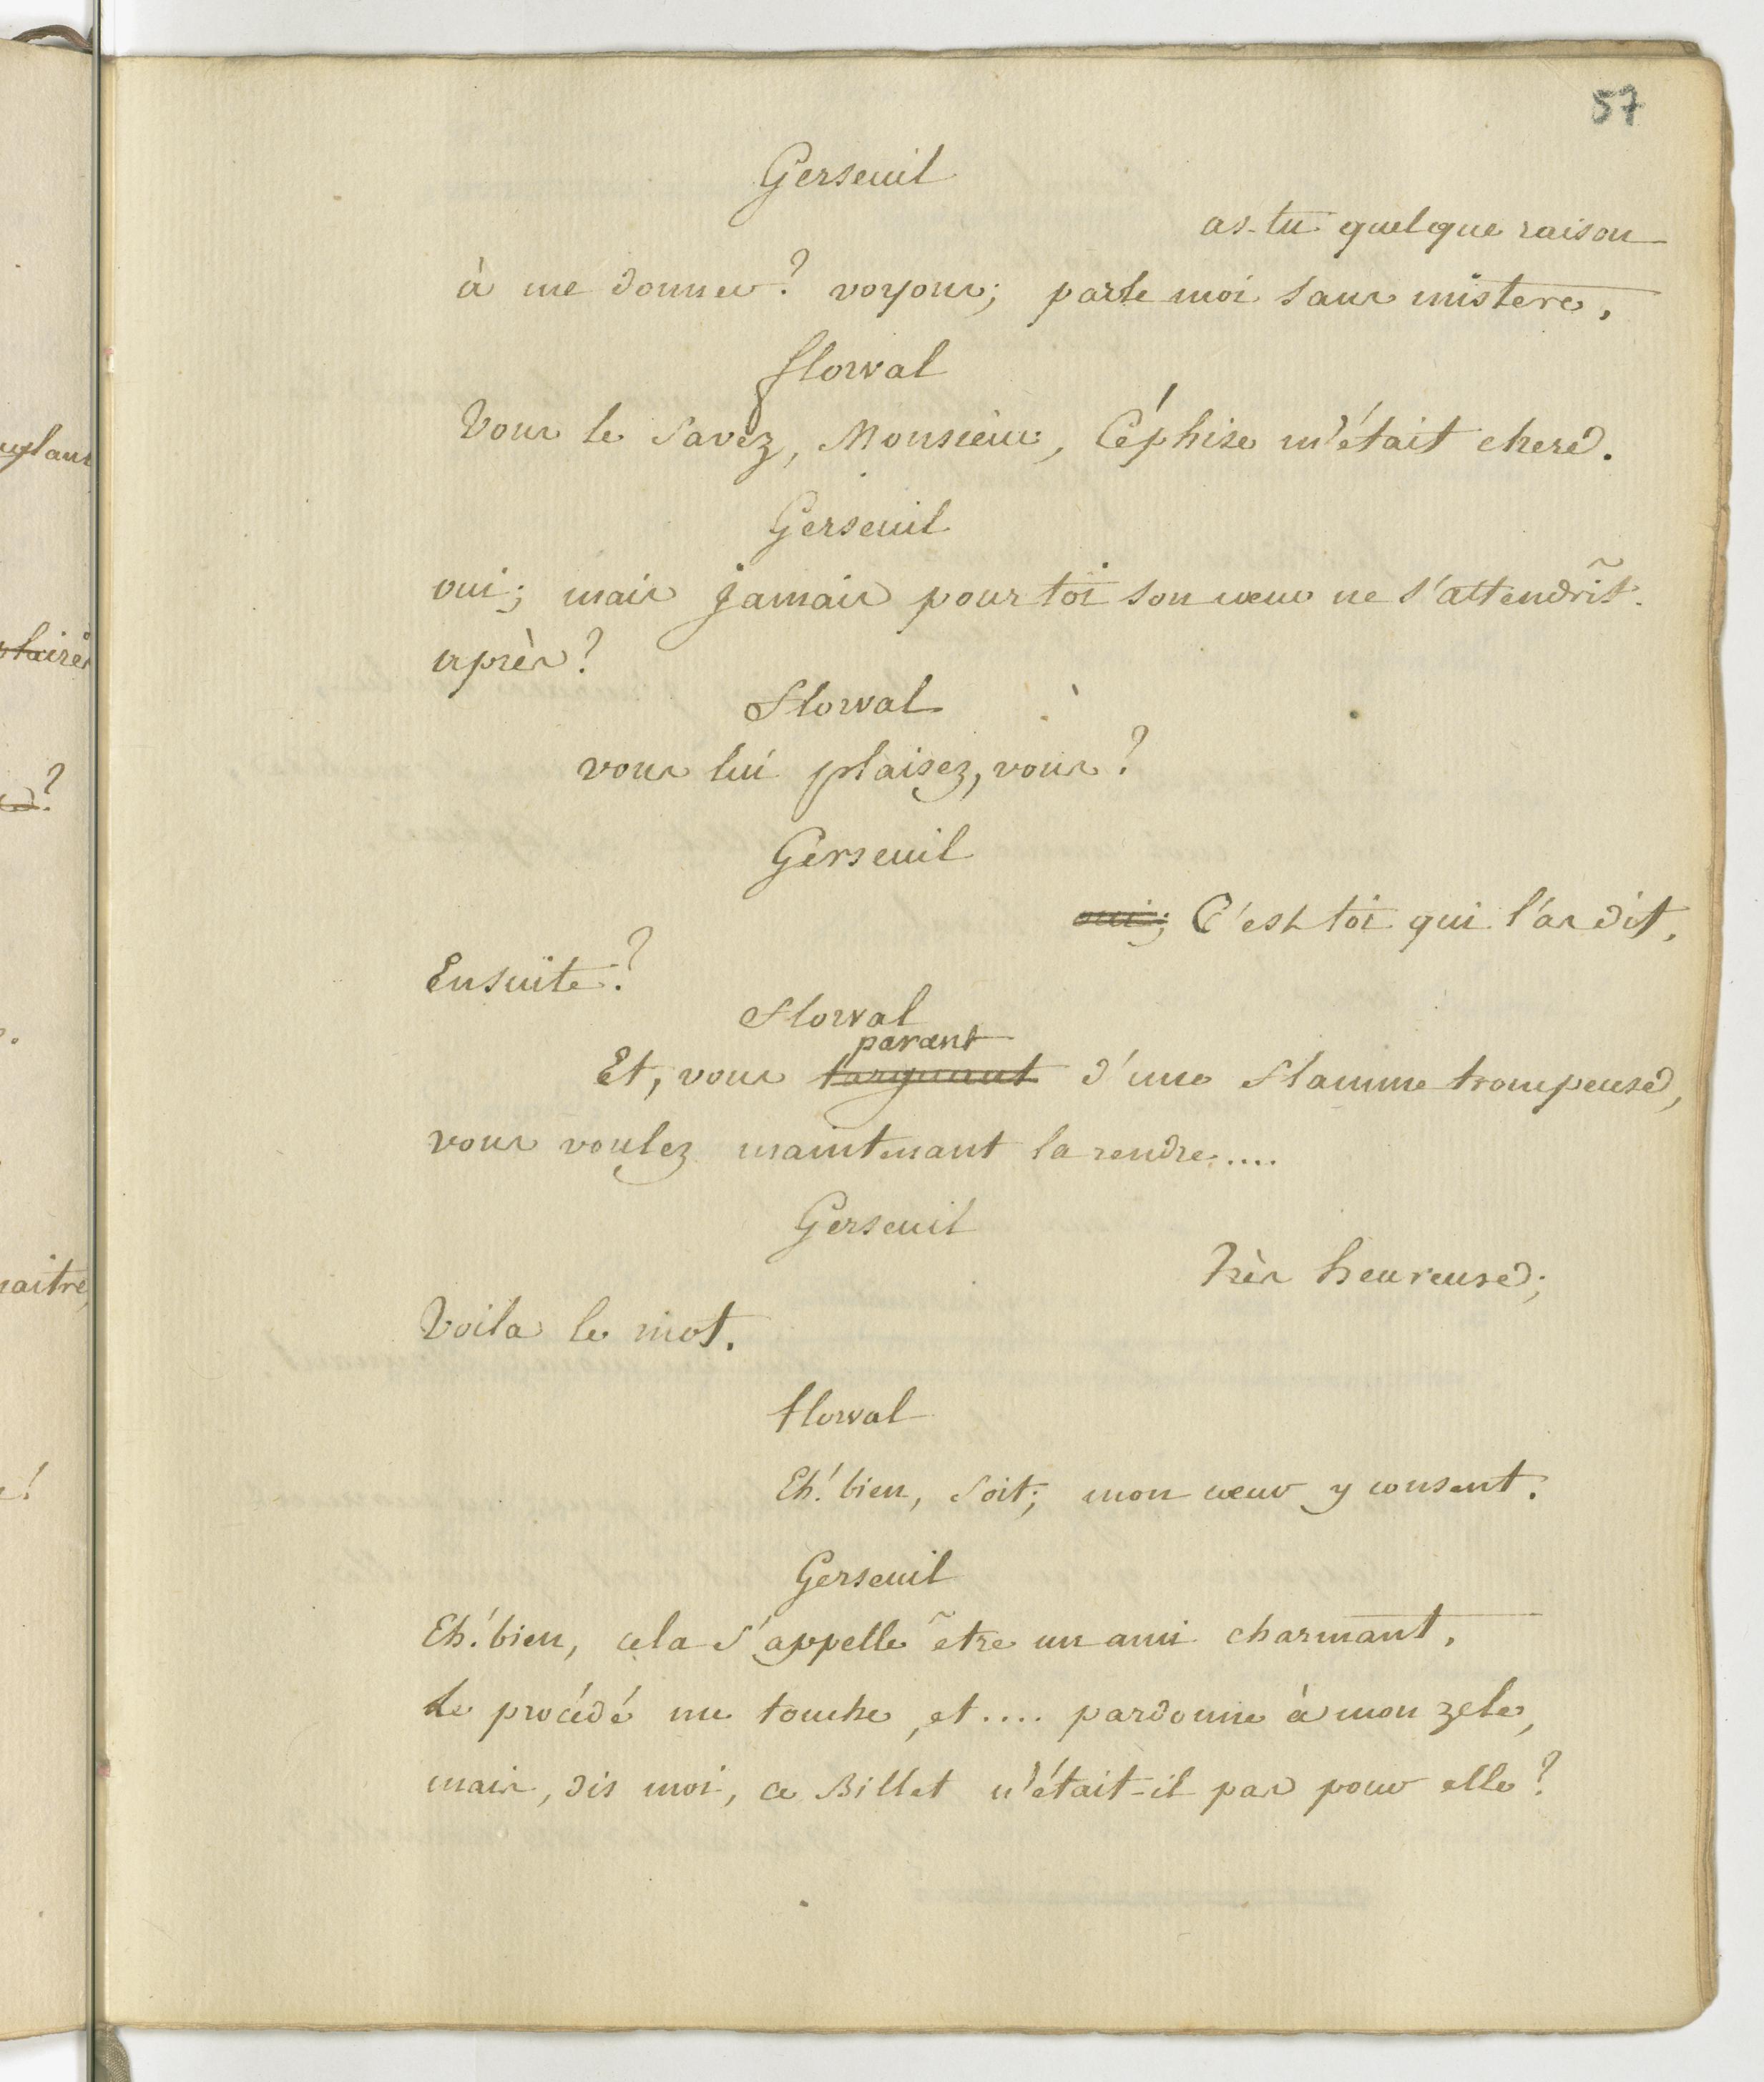 57
Gerseuil
as-tu quelque raison
à me donner? voyons; parle moi sans mistere,
florval
Vous le savez, Monsieur, Céphise m'était chere.
Gerseuil
oui; mais jamais pour toi son cœur ne s'attendrît.
après?
Florval
vous lui plaisez, vous?
Gerseuil
oui; C'est toi qui l'as dit,
Ensuite?
Florval
parant
Et, vous targuant d'une flamme trompeuse,
vous voulez maintenant la rendre....
Gerseuil
Très heureuse;
Voila le mot.
florval
Eh! bien, soit; mon cœur y consent.
Gerseuil
Eh! bien, cela s'appelle être un ami charmant,
Le procédé me touche, et.... pardonne à mon zele,
mais, dis moi, ce Billet n'était-il pas pour elle?